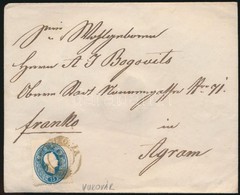 Seiner Wohlgeboren
Herrn A J Bogovits
Obere Stadt Kapuzinergasse Nro 71.
franko
in
Agram
15
VUKOVÁR